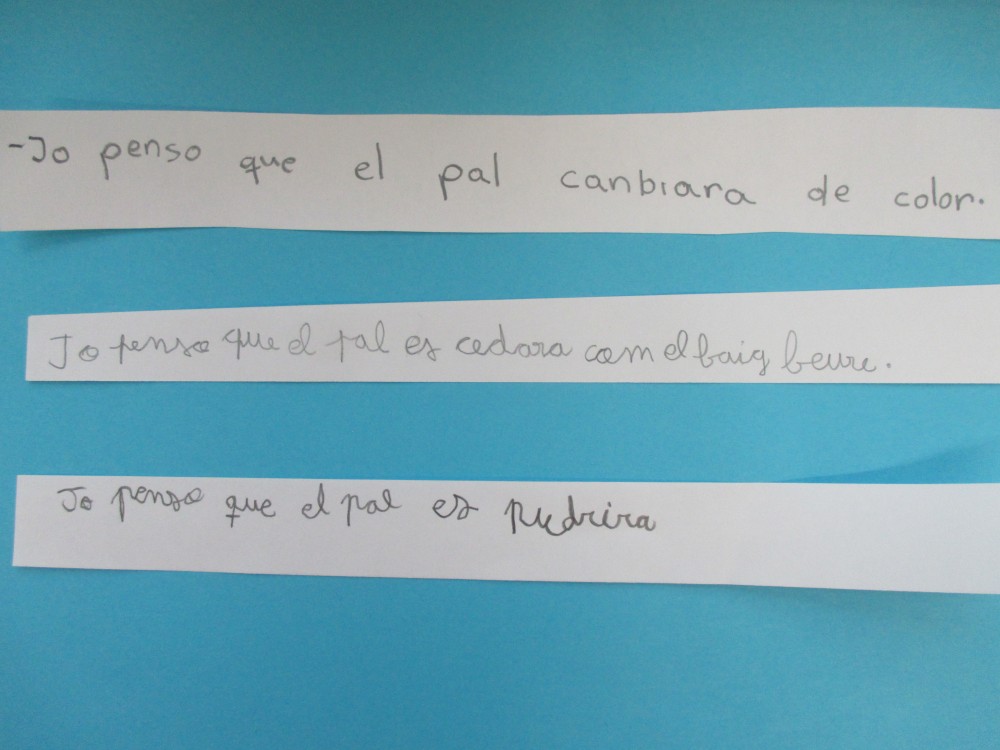 -Jo penso que el pal canbiara de color.
Jo penso que el pal es cedara com el baig beure.
Jo penso que el pal es pudrira